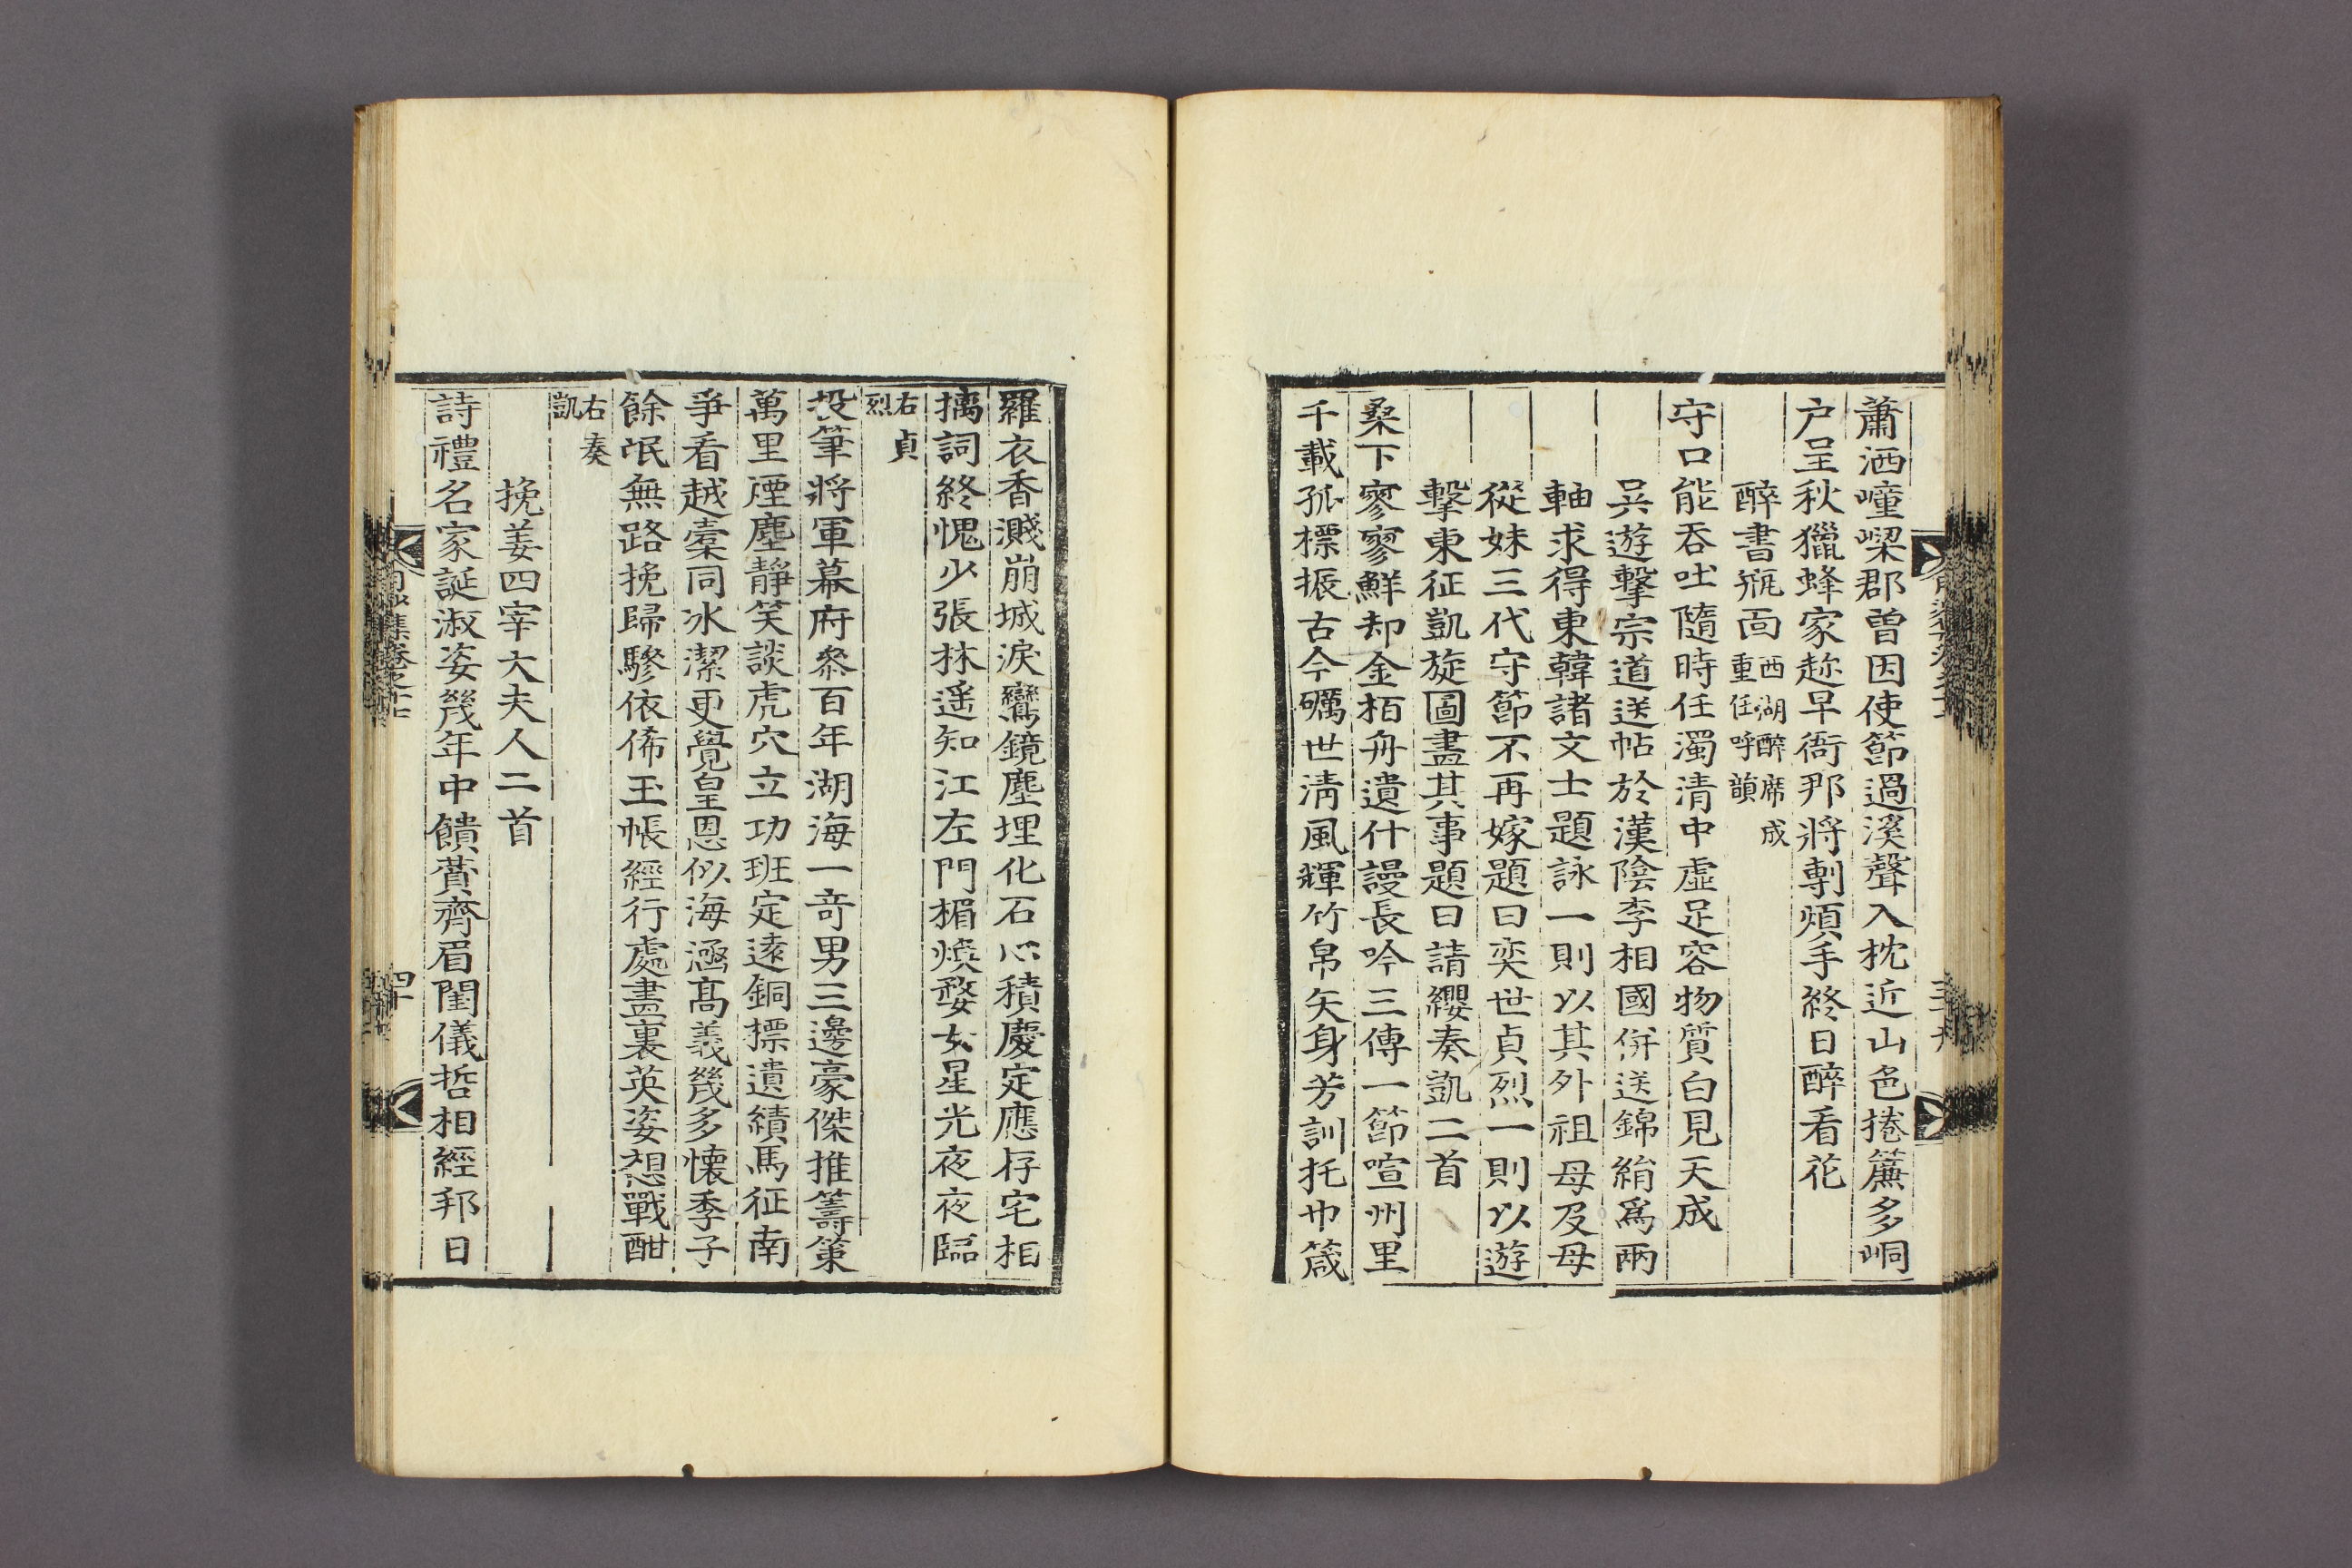 蕭洒㠉㠔郡曽因使節過溪聲入枕近山色捲簾多峒
户呈秋獵蜂家趂早衙那將剸煩手終日醉看花
醉書瓶面西湖醉席成重任呼韻
守口能吞吐隨時任濁清中虛足容物質白見天成
吳遊擊宗道送帖於漢陰李相國併送錦絹爲兩
軸求得東韓諸文士題詠一則以其外祖母及母
從妹三代守節不再嫁題曰奕世貞烈一則以遊
擊東征凱旋圖畫其事題曰請纓奏凱二首
桑下寥寥鮮却金栢舟遺什謾長吟三傳一節喧州里
千載孤標振古今礪世淸風輝竹帛矢身芳訓托巾箴
羅衣香濺崩城淚鸞鏡塵埋化石心積慶定應存宅相
摛詞終愧少張林遥知江左門楣煥婺女星光夜夜臨
右貞烈
投筆將軍幕府叅百年湖海一竒男三邊豪傑推籌策
萬里煙塵靜笑談虎穴立功班定遠銅標遺績馬征南
爭看越橐同水潔更覺皇恩似海涵髙義幾多懐季子
餘氓無路挽歸驂依俙玉帳經行處畫裏英姿想戰酣
右奏凱
挽姜四宰大夫人二首
詩禮名家誕淑姿幾年中饋賛齊眉閨儀哲相經邦日
四十